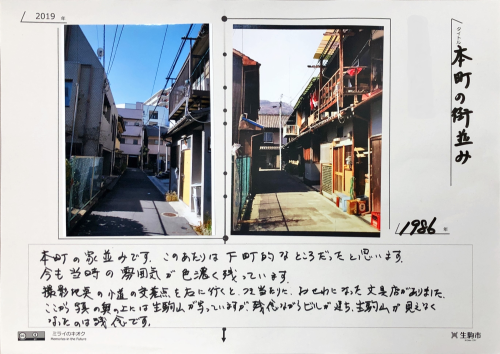 2019 年
タイトル
本町の街並み
1986 年
本町の家並みです。このあたりは下町的なところだったと思います。
今も当時の雰囲気が色濃く残っています。
撮影地奥の小道の交差点を右に行くと、つき当たりに、おせわになった文具店がありました。
ここから預の奥の上には生駒山が写っていますが、残念ながらビルが建ち、生駒山が見えなく
なったのは残念です。
ミライのキオク
Memories in the Future
生駒市